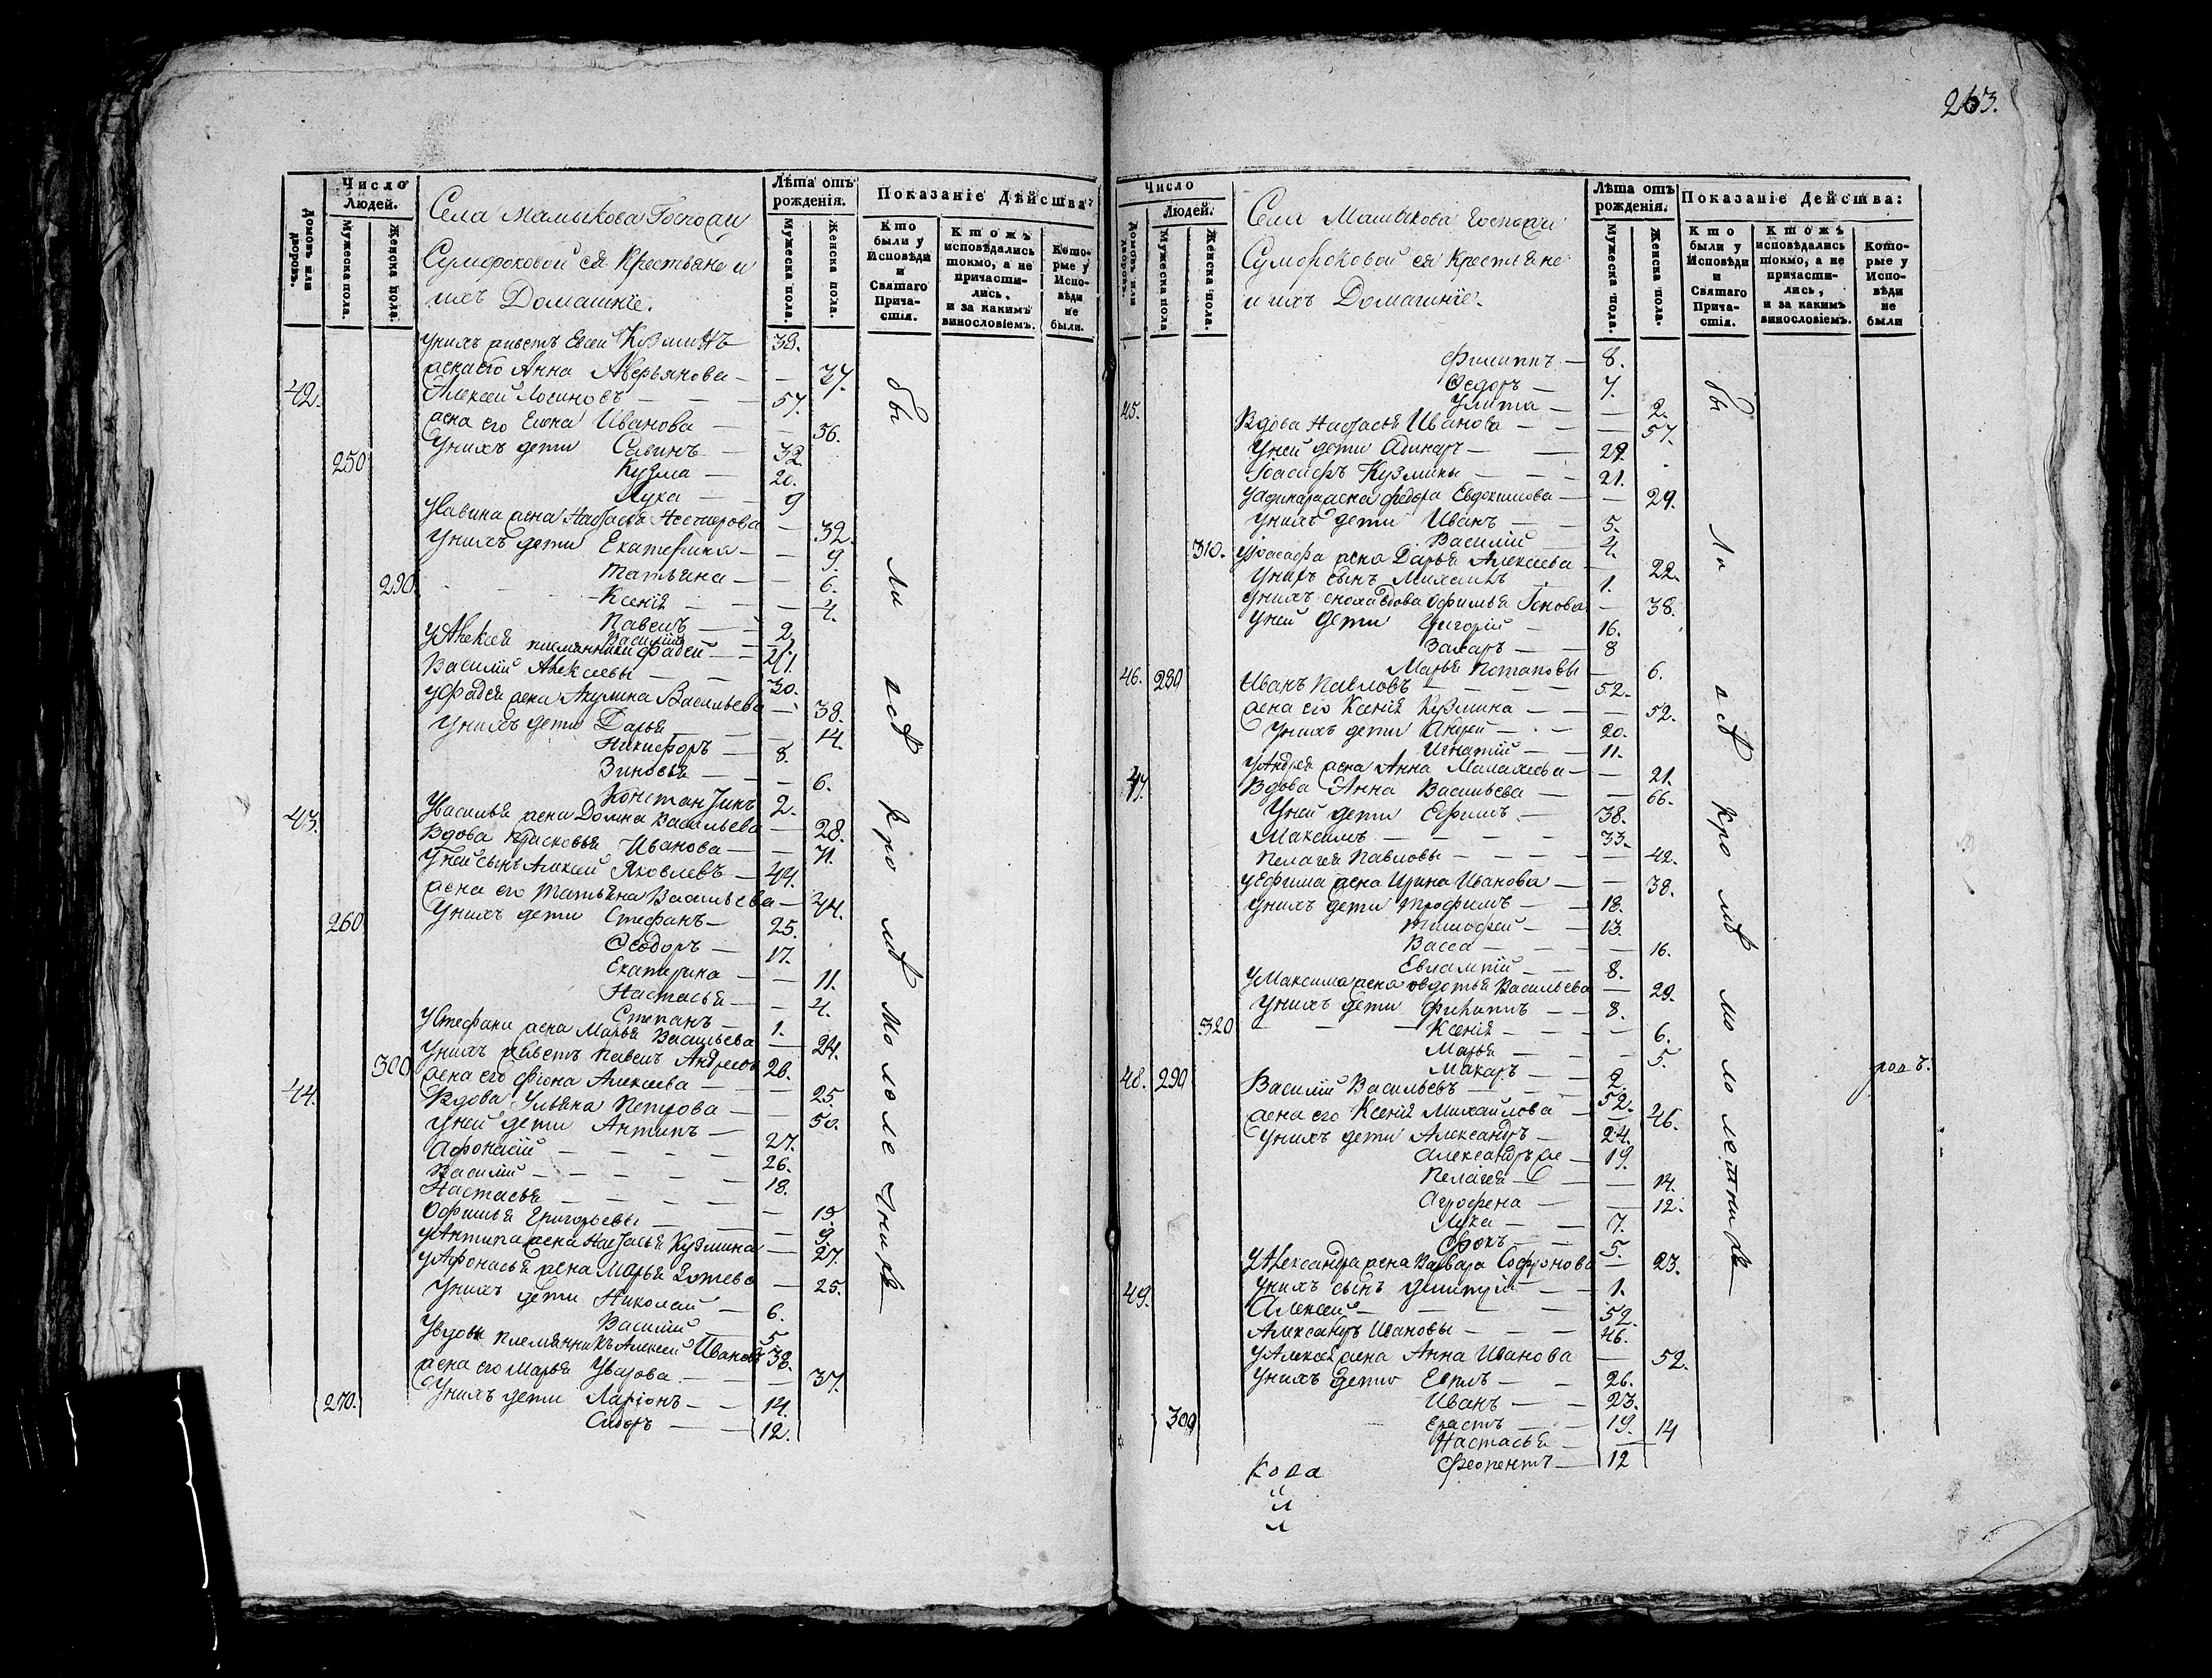 263.
Число Людей.
Домовъ или дворовъ.
Мужеска пола.
Женска пола.
Села Мамыкова Госпожи
Сумороковой ея Крестьяне и
ихъ Домашніе.
Лѣта отъ рожденія.
Мужеска пола.
Женска пола.
Показаніе Дѣйства
Кто были у Исповѣди и Святаго Причастія.
Ктожъ исповѣдались токмо, а не причастились, и за какимъ винословіемъ.
Которые у Исповѣди не были.
унихъ живетъ Евсей Кузминъ 38.
жена его Анна Аверьянова 37.
42. Алексей Логиновъ 57.
жена его Елена Иванова 56.
унихъ дети Савинъ 32
250 Кузма 20.
Лука 9
уСавина жена Настасья Нестерова 32.
унихъ дети Екатерина 9.
Татьяна 6.
290 Ксенія 4.
Павелъ 2.
Василій
уАлексея племянники Фадей
Василій Алексеевы 30.
уФадея жена Акулина Васильева 38.
унихъ дети Дарья 14.
Никифоръ 8.
Зиновья 6.
Константинъ 2.
уВасилья жена Домна Васильева 28.
43. Вдова Прасковья Иванова 71.
уней сынъ Алексей Яковлевъ 44.
жена его Татьяна Васильева 44.
260 унихъ дети Стефанъ 25.
Феодоръ 17.
Екатерина 11.
Настасья 4.
Степанъ 1.
уСтефана жена Марья Васильева 24.
унихъ живетъ Павелъ Андреевъ 26.
300 жена его Фіона Алексеева 25.
44. Вдова Ульяна Петрова 50.
уней дети Антипъ 27.
Афонасій 26.
Василій 18.
Настасья 15
Офимья Григорьевы 9.
уАнтипа жена Настасья Кузмина 27.
уАфонасья жена Марья Зотева 25.
унихъ дети Николай 6.
Василій 5
увдовы племянникъ Алексей Ивановъ 38.
жена его Марья Уварова 37.
270. унихъ дети Ларіонъ 14.
Сидоръ 12.
бы ли всѣ кро мѣ мо ло ле тнихъ
Число Людей.
Домовъ или дворовъ.
Мужеска пола
Женска пола.
Села Мамыкова Госпожи
Сумороковой ея Крестьяне
и ихъ Домашніе.
Лѣта отъ рожденія.
Мужеска пола.
Женска пола.
Показаніе Действа:
Кто были у Исповѣди и Святаго Причастія.
Ктожъ исповѣдались токмо, а не причастились, и за какимъ винословіемъ.
Которые у Исповѣди не были
Филиппъ 8.
Федоръ 7.
Улита 2.
45. Вдова Настасья Иванова 57.
уней дети Адинаръ 29.
Іоасафъ Кузмины 21.
уАдинара жена Федора Евдокимова 29.
унихъ дети Иванъ 5.
Василій 4.
310. уІоасафа жена Дарья Алексеева 22.
унихъ сынъ Михаилъ 1.
унихъ сноха вдова Офимья 38.
уней дети Григорій 16.
Захаръ 8
Марья Потаповы 6.
46. 280 Иванъ Павловъ 52.
жена его Ксенія Кузмина 52.
унихъ дети Андрей 20.
Игнатій 11.
уАндрея жена Анна Малахіева 21.
47. Вдова Анна Васильева 66.
уней дети Ефимъ 38.
Максимъ 33.
Пелагея Павловы 42.
уЕфима жена Ирина Иванова 38.
унихъ дети Трофимъ 18.
Тимофей 13.
Васса 16.
Евлампій 8.
уМаксима жена Овдотья Васильева 29.
унихъ дети Филиппъ 8.
320 Ксенія 6.
Марья 5.
Макаръ 2.
48. 290 Василій Васильевъ 52.
жена его Ксенія Михайлова 46.
унихъ дети Александръ 24.
Александръ же 19.
Пелагея 14.
Агрофена 12.
Лука 7.
Фокъ 5.
уАлександра жена Варвара Софронова 23.
унихъ сынъ Димитрій 1.
49. Алексей 52.
Александръ Ивановы 46.
уАлексея жена Анна Иванова 52.
унихъ дети Евплъ 26.
Иванъ 23.
300 Ерастъ 19.
Настасья 14
Феопентъ 12
бы ли всѣ кро мѣ мо ло летнихъ